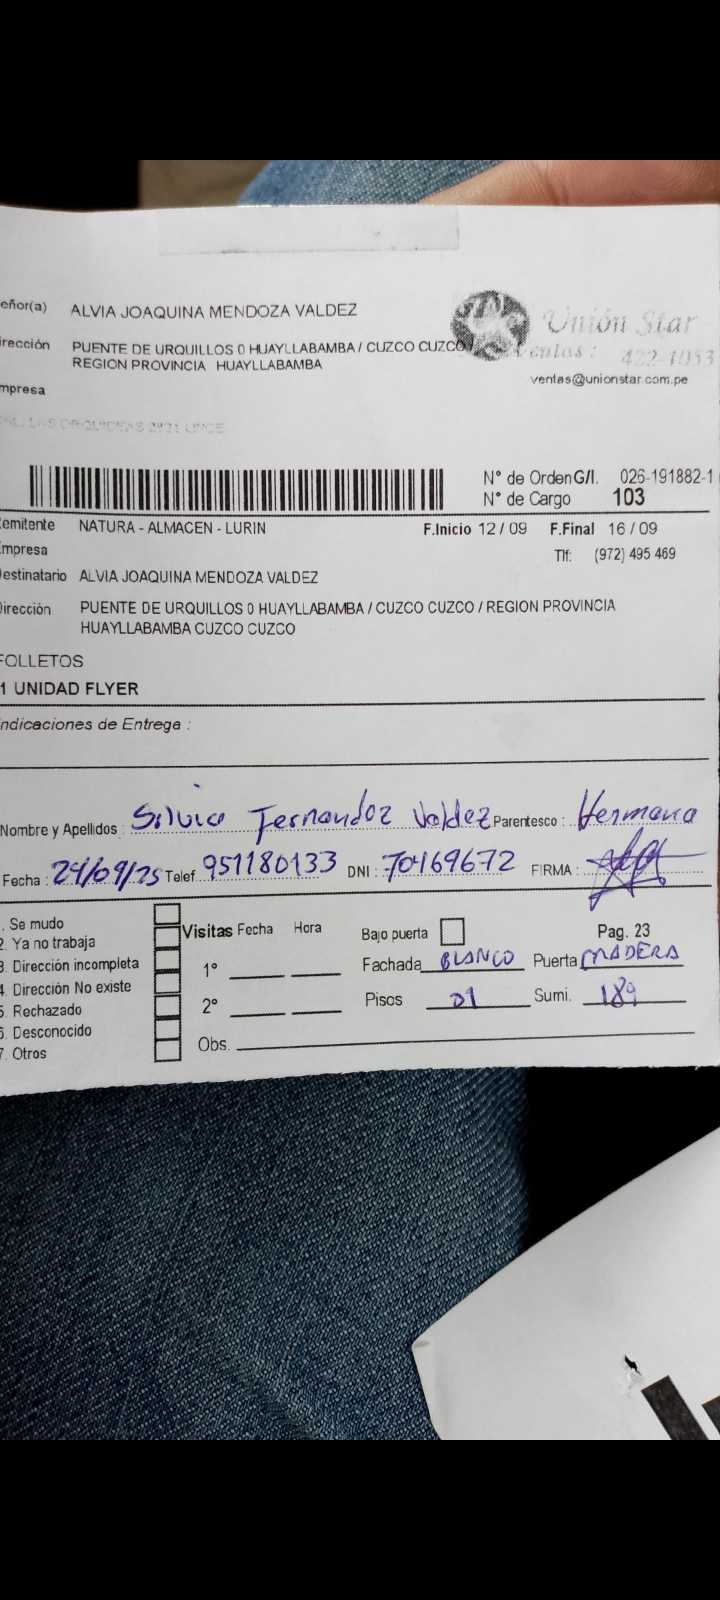 eñor(a) ALVIA JOAQUINA MENDOZA VALDEZ
Unión Star
irección PUENTE DE URQUILLOS 0 HUAYLLABAMBA / CUZCO CUZCO /
REGION PROVINCIA HUAYLLABAMBA
Ventas : 422-1053
ventas@unionstar.com.pe
mpresa
LAS ORQUIDEAS 2931 LINCE
N° de Orden G/I. 026-191882-1
N° de Cargo 103
emitente NATURA - ALMACEN - LURIN F.Inicio 12 / 09 F.Final 16 / 09
Empresa Tlf: (972) 495 469
estinatario ALVIA JOAQUINA MENDOZA VALDEZ
irección PUENTE DE URQUILLOS 0 HUAYLLABAMBA / CUZCO CUZCO / REGION PROVINCIA
HUAYLLABAMBA CUZCO CUZCO
FOLLETOS
1 UNIDAD FLYER
ndicaciones de Entrega :
Nombre y Apellidos : Silvia Fernandoz Valdez Parentesco : Hermana
Fecha : 24/09/25 Telef. 951180133 DNI : 70169672 FIRMA :
. Se mudo
2. Ya no trabaja
3. Dirección incompleta
4. Dirección No existe
5. Rechazado
6. Desconocido
7. Otros
Visitas Fecha Hora
1°
2°
Obs.
Bajo puerta Pag. 23
Fachada BLANCO Puerta MADERA
Pisos 01 Sumi. 189